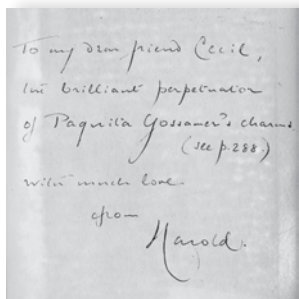 To my dear friend Cecil,
the brilliant perpetuator
of Paquita Gossamer's charms
(see p. 288.)
with much love.
from
Harold.